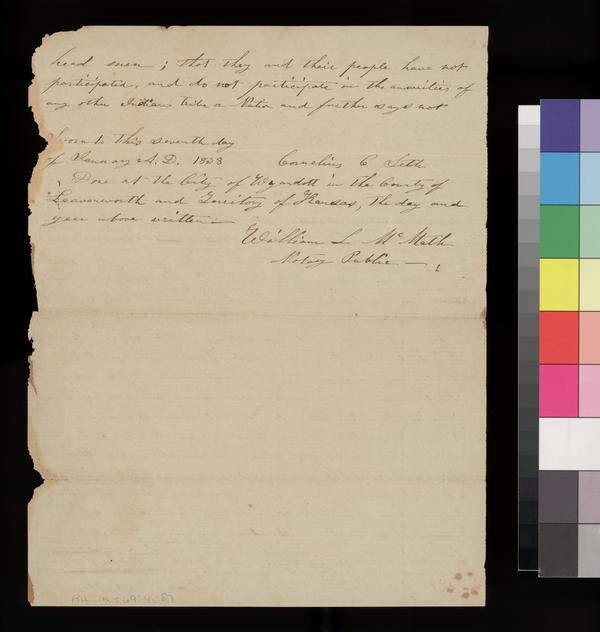 head men ; that they and their people have not
participated, and do not participate in the annuities of
any other Indian tribe or Nation and further says not
Sworn to this seventh day
of January A. D. 1858 Cornelius C Seth
Done at the City of Wyandott in the County of
Leavenworth and Territory of Kansas, the day and
year above written —
William L McMath
Notary Public —
RH MS 69:4.87